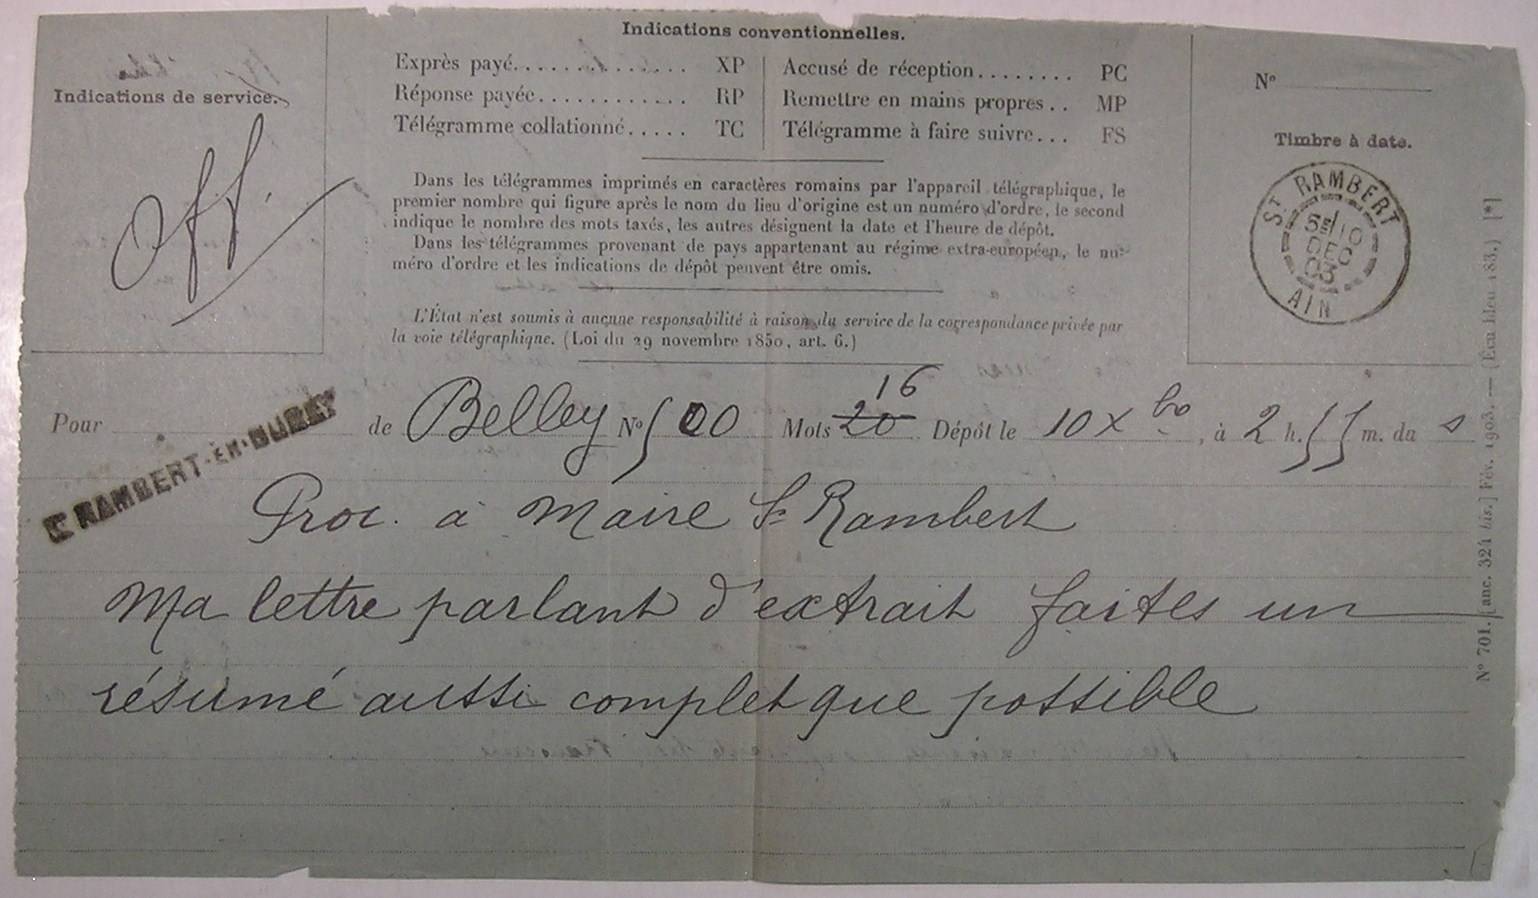 Indications conventionnelles.
Exprès payé............... XP
Réponse payée............ RP
Télégramme collationné..... TC
Accusé de réception........ PC
Remettre en mains propres.. MP
Télégramme à faire suivre... FS
Indications de service.
Off.
Dans les télégrammes imprimés en caractères romains par l'appareil télégraphique, le
premier nombre qui figure après le nom du lieu d'origine est un numéro d'ordre, le second
indique le nombre des mots taxés, les autres désignent la date et l'heure de dépôt.
Dans les télégrammes provenant de pays appartenant au régime extra-européen, le nu-
méro d'ordre et les indications de dépôt peuvent être omis.
L'État n'est soumis à aucune responsabilité à raison du service de la correspondance privée par
la voie télégraphique. (Loi du 29 novembre 1850, art. 6.)
N°
Timbre à date.
ST RAMBERT
10
DEC
03
AIN
N° 701. [anc. 324 bis.] Fév. 1903. — (Écu bleu 183.) [*]
16
Pour de Belley N° 500 Mots 20 Dépôt le 10 Xbre, à 2 h. 55 m. du s
ST RAMBERT-EN-BUGEY
Proc. à Maire St Rambert
Ma lettre parlant d'extrait faites un
résumé aussi complet que possible